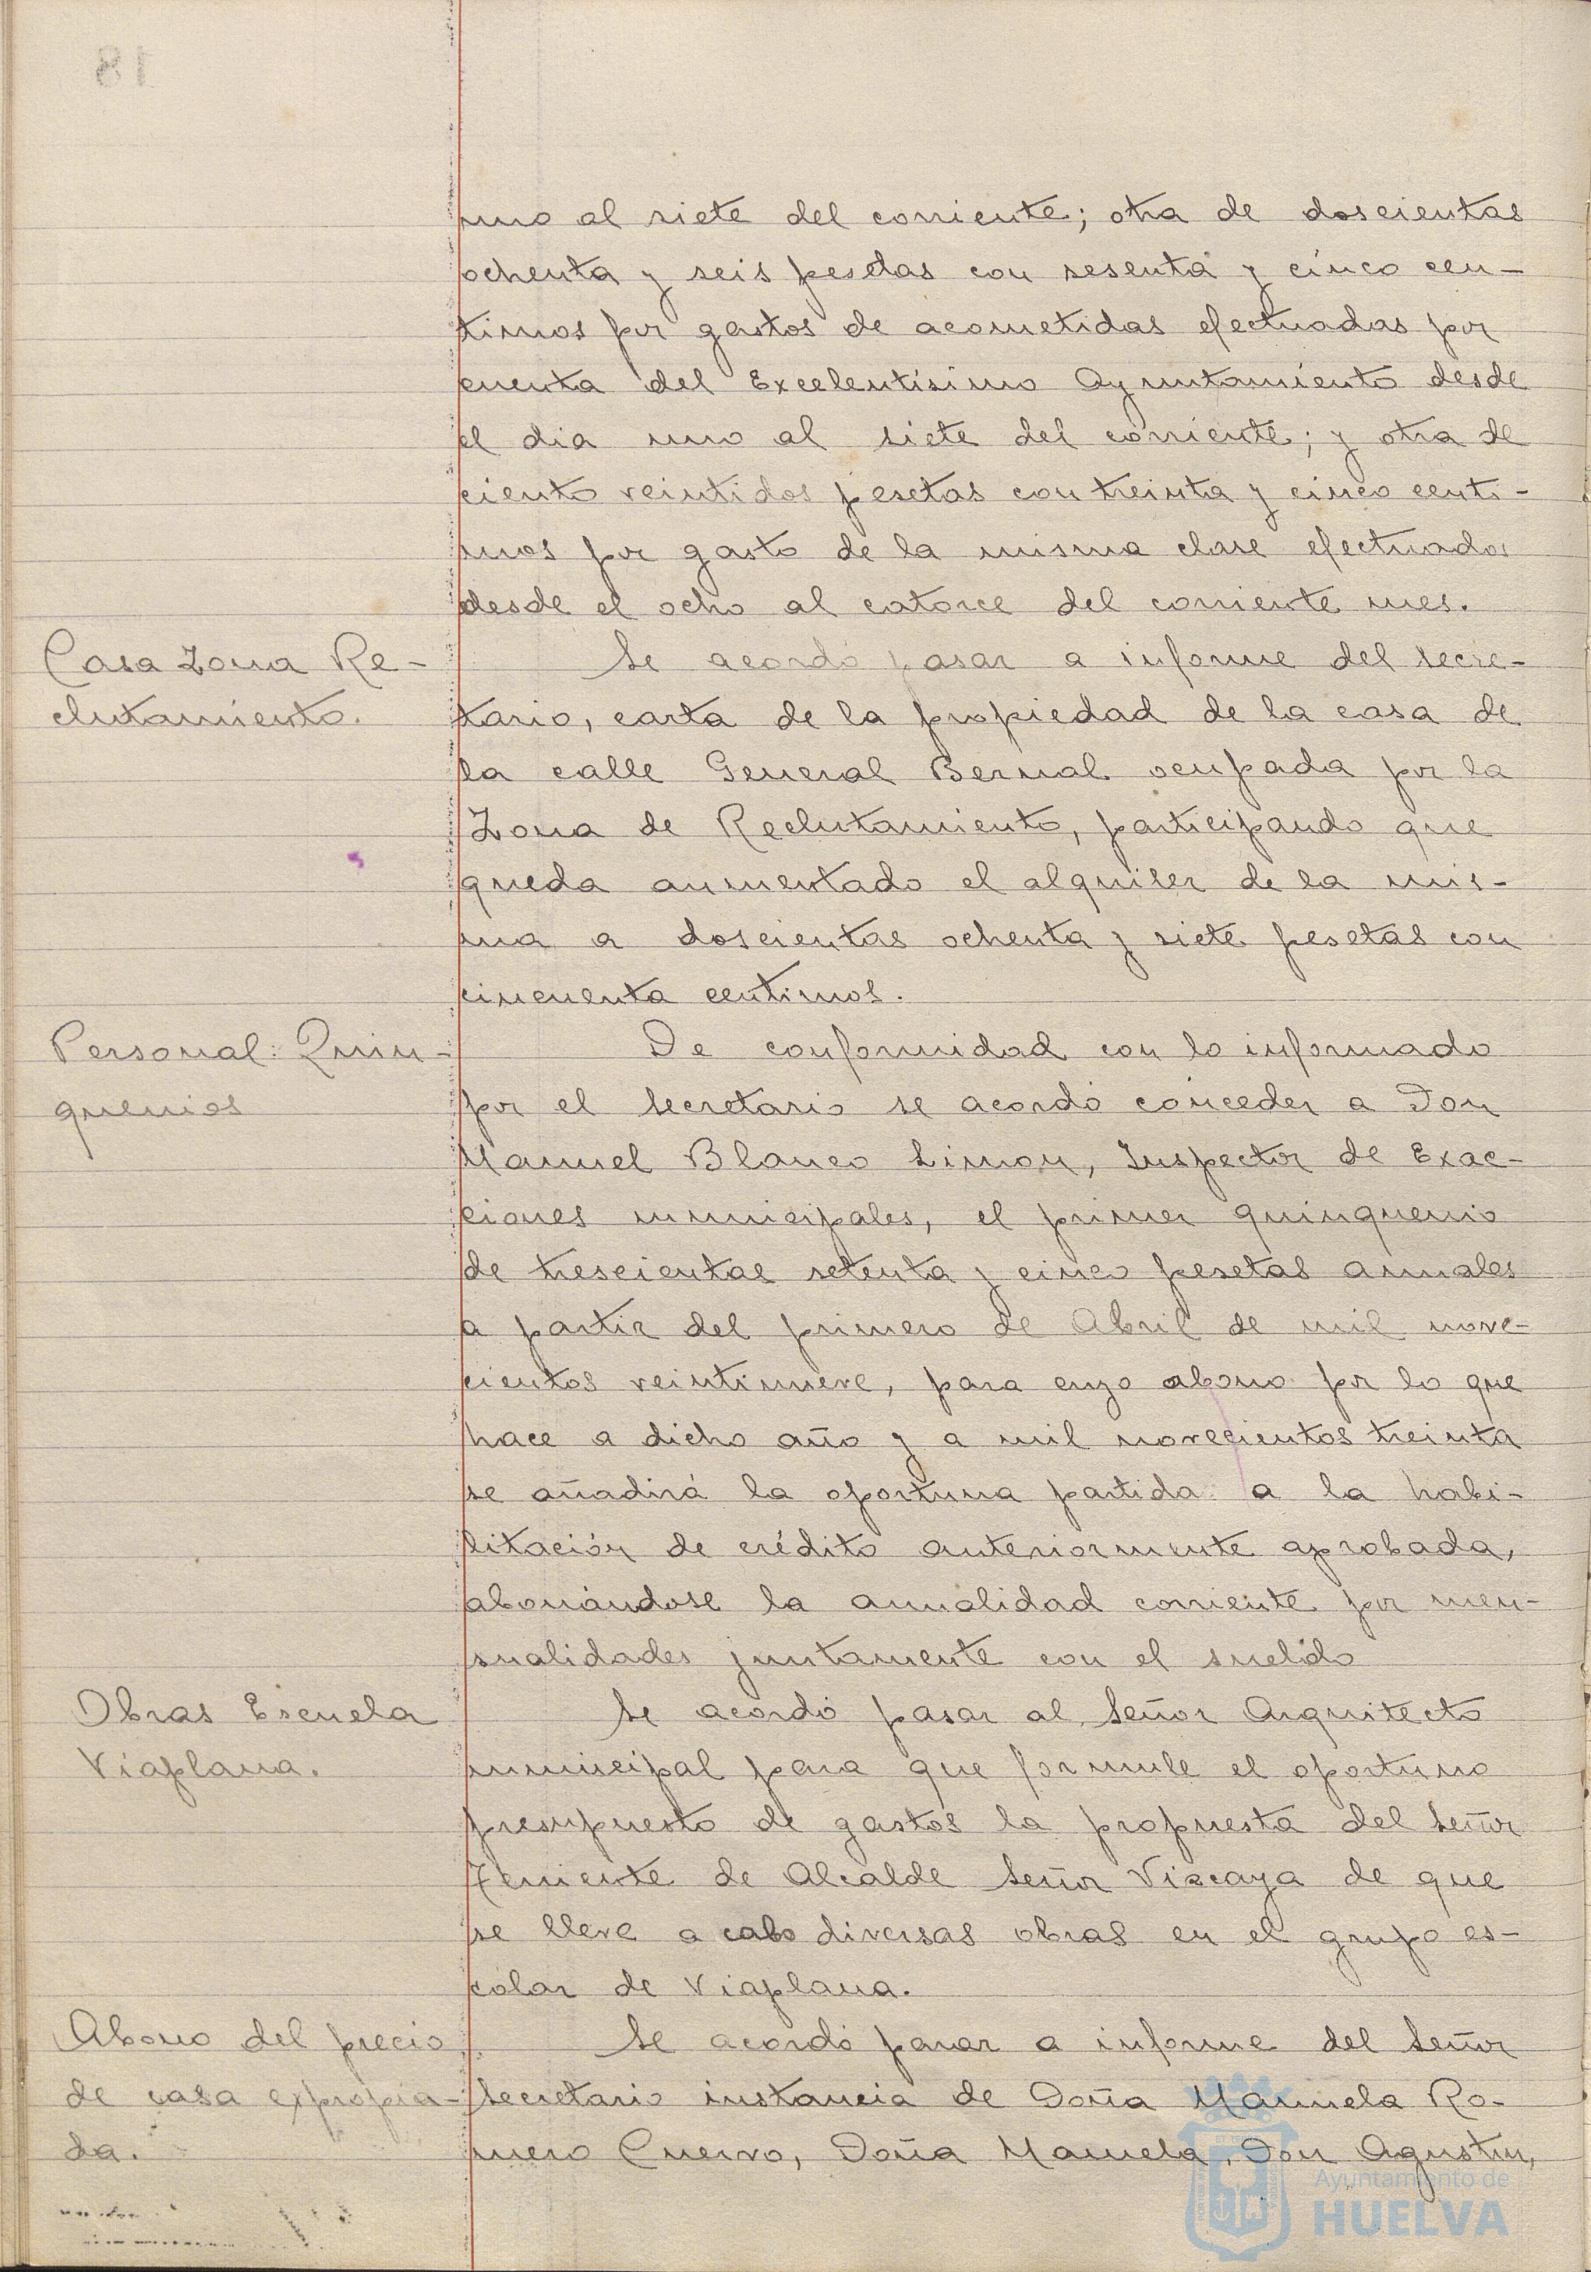 uno al siete del corriente; otra de doscientas
ochenta y seis pesetas con sesenta y cinco cen-
timos por gastos de acometidas efectuadas por
cuenta del Excelentísimo Ayuntamiento desde
el dia uno al siete del corriente; y otra de
ciento veintidos pesetas con treinta y cinco centi-
mos por gasto de la misma clase efectuados
desde el ocho al catorce del corriente mes.
Casa Zona Re-
clutamiento.
Se acordó pasar a informe del secre-
tario, carta de la propiedad de la casa de
la calle General Bernal ocupada por la
Zona de Reclutamiento, participando que
queda aumentado el alquiler de la mis-
ma a doscientas ochenta y siete pesetas con
cincuenta centimos.
Personal: Quin-
quenios
De conformidad con lo informado
por el secretario se acordó conceder a Don
Manuel Blanco Limon, Inspector de Exac-
ciones municipales, el primer quinquenio
de trescientas setenta y cinco pesetas anuales
a partir del primero de Abril de mil nove-
cientos veintinueve, para cuyo abono por lo que
hace a dicho año y a mil novecientos treinta
se añadirá la oportuna partida a la habi-
litación de crédito anteriormente aprobada,
abonándose la anualidad corriente por men-
sualidades juntamente con el sueldo
Obras Escuela
Viaplana.
Se acordó pasar al Señor Arquitecto
municipal para que formule el oportuno
presupuesto de gastos la propuesta del señor
Teniente de Alcalde Señor Vizcaya de que
se lleve a cabo diversas obras en el grupo es-
colar de Viaplana.
Abono del precio
de casa expropia-
da.
Se acordó pasar a informe del Señor
secretario instancia de Doña Manuela Ro-
mero Cuervo, Doña Manuela, Don Agustin,
Ayuntamiento de
HUELVA
18